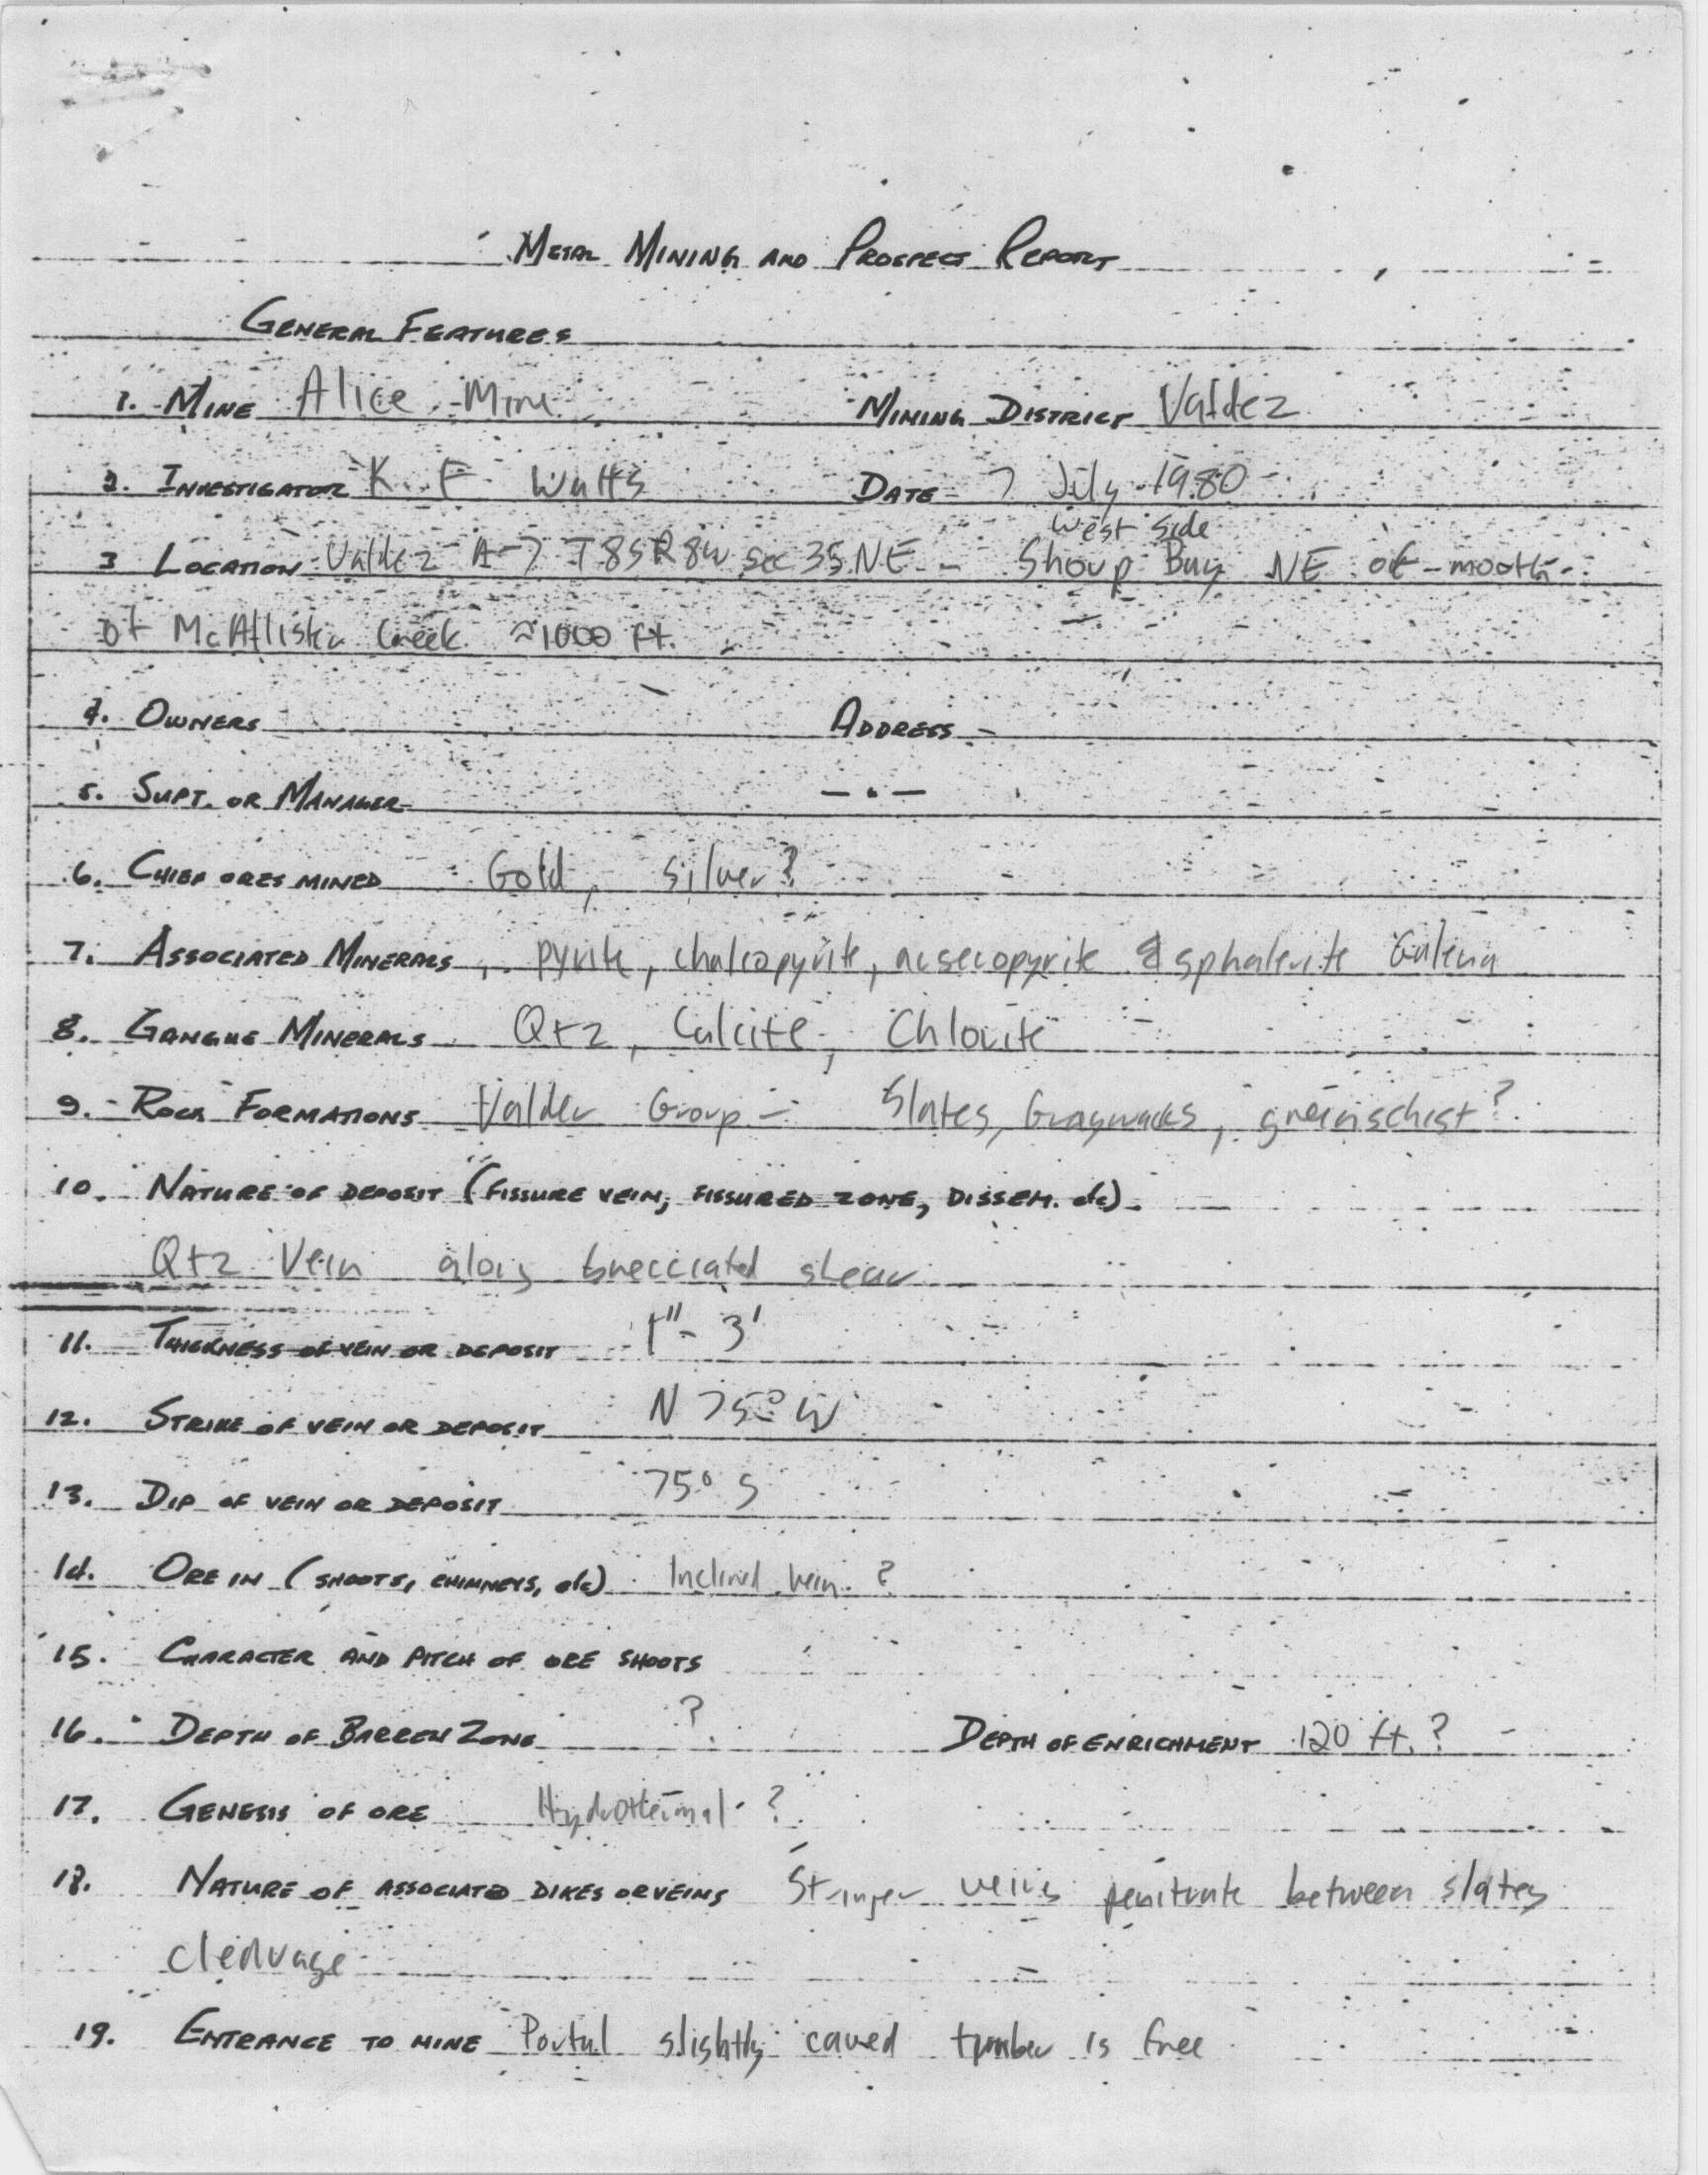 METAL MINING AND PROSPECT REPORT
GENERAL FEATURES
1. MINE Alice Mine MINING DISTRICT Valdez
2. INVESTIGATOR K. F. Watts DATE 7 July 1980
west side
3 LOCATION Valdez A-7 T8S R8W sec 35 NE - Shoup Bay NE of mouth
of McAllister Creek ≈1000 ft.
4. OWNERS ADDRESS
5. SUPT. OR MANAGER — . —
6. CHIEF ORES MINED Gold, silver?
7. ASSOCIATED MINERALS, pyrite, chalcopyrite, arsecopyrite & sphalerite Galena
8. GANGUE MINERALS Qtz, Calcite, Chlorite
9. ROCK FORMATIONS Valdez Group - Slates, Graywacks, greenschist?
10. NATURE OF DEPOSIT (FISSURE VEIN, FISSURED ZONE, DISSEM. etc).
Qtz Vein along brecciated shear
11. THICKNESS OF VEIN OR DEPOSIT 1" - 3'
12. STRIKE OF VEIN OR DEPOSIT N 75° W
13. DIP OF VEIN OR DEPOSIT 75° S
14. ORE IN (SHOOTS, CHIMNEYS, etc) Inclined vein ?
15. CHARACTER AND PITCH OF ORE SHOOTS
16. DEPTH OF BARREN ZONE ? DEPTH OF ENRICHMENT 120 ft. ?
17. GENESIS OF ORE Hydrothermal ?
18. NATURE OF ASSOCIATED DIKES OR VEINS Stringer veins penitrate between slatey
cleavage
19. ENTRANCE TO MINE Portal slightly caved timber is free